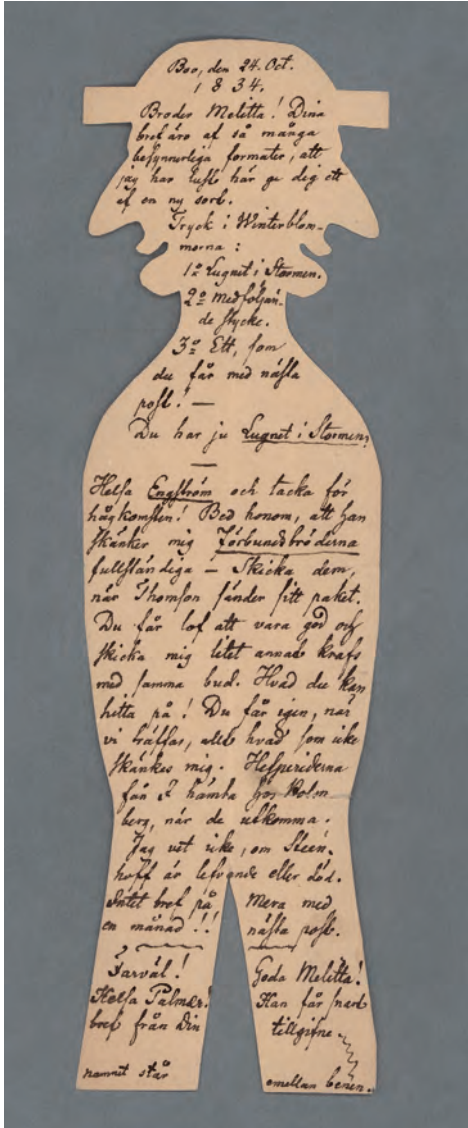 Boo, den 24. Oct.
1834.
Broder Melitta! Dina
bref äro af så många
besynnerliga formater, att
jag har lust här ge dig ett
af en ny sort.
Tryck i Winterblom-
morna:
1º Lugnet i Stormen.
2º Medföljan-
de stycke.
3º Ett, som
du får med nästa
post! —
Du har ju Lugnet i Stormen?
—
Helsa Engström och tacka för
hågkomsten! Bed honom, att han
skänker mig Förbundsbröderna
fullständiga — Skicka dem,
när Thomson sänder sitt paket.
Du får lof att vara god och
skicka mig litet annat krafs
med samma bud. Hvad du kan
hitta på! Du får igen, när
vi träffas, allt hvad som icke
skänkes mig. Hesperiderna
fån I hämta hos Holm
berg, när de utkomma.
Jag vet icke, om Steen-
hoff är lefvande eller död.
Intet bref på
en månad!!
Mera med
nästa post.
Farväl!
Helsa Palmær!
bref från Din
Goda Melitta!
Han får snart
tillgifne
namnet står
emellan benen.